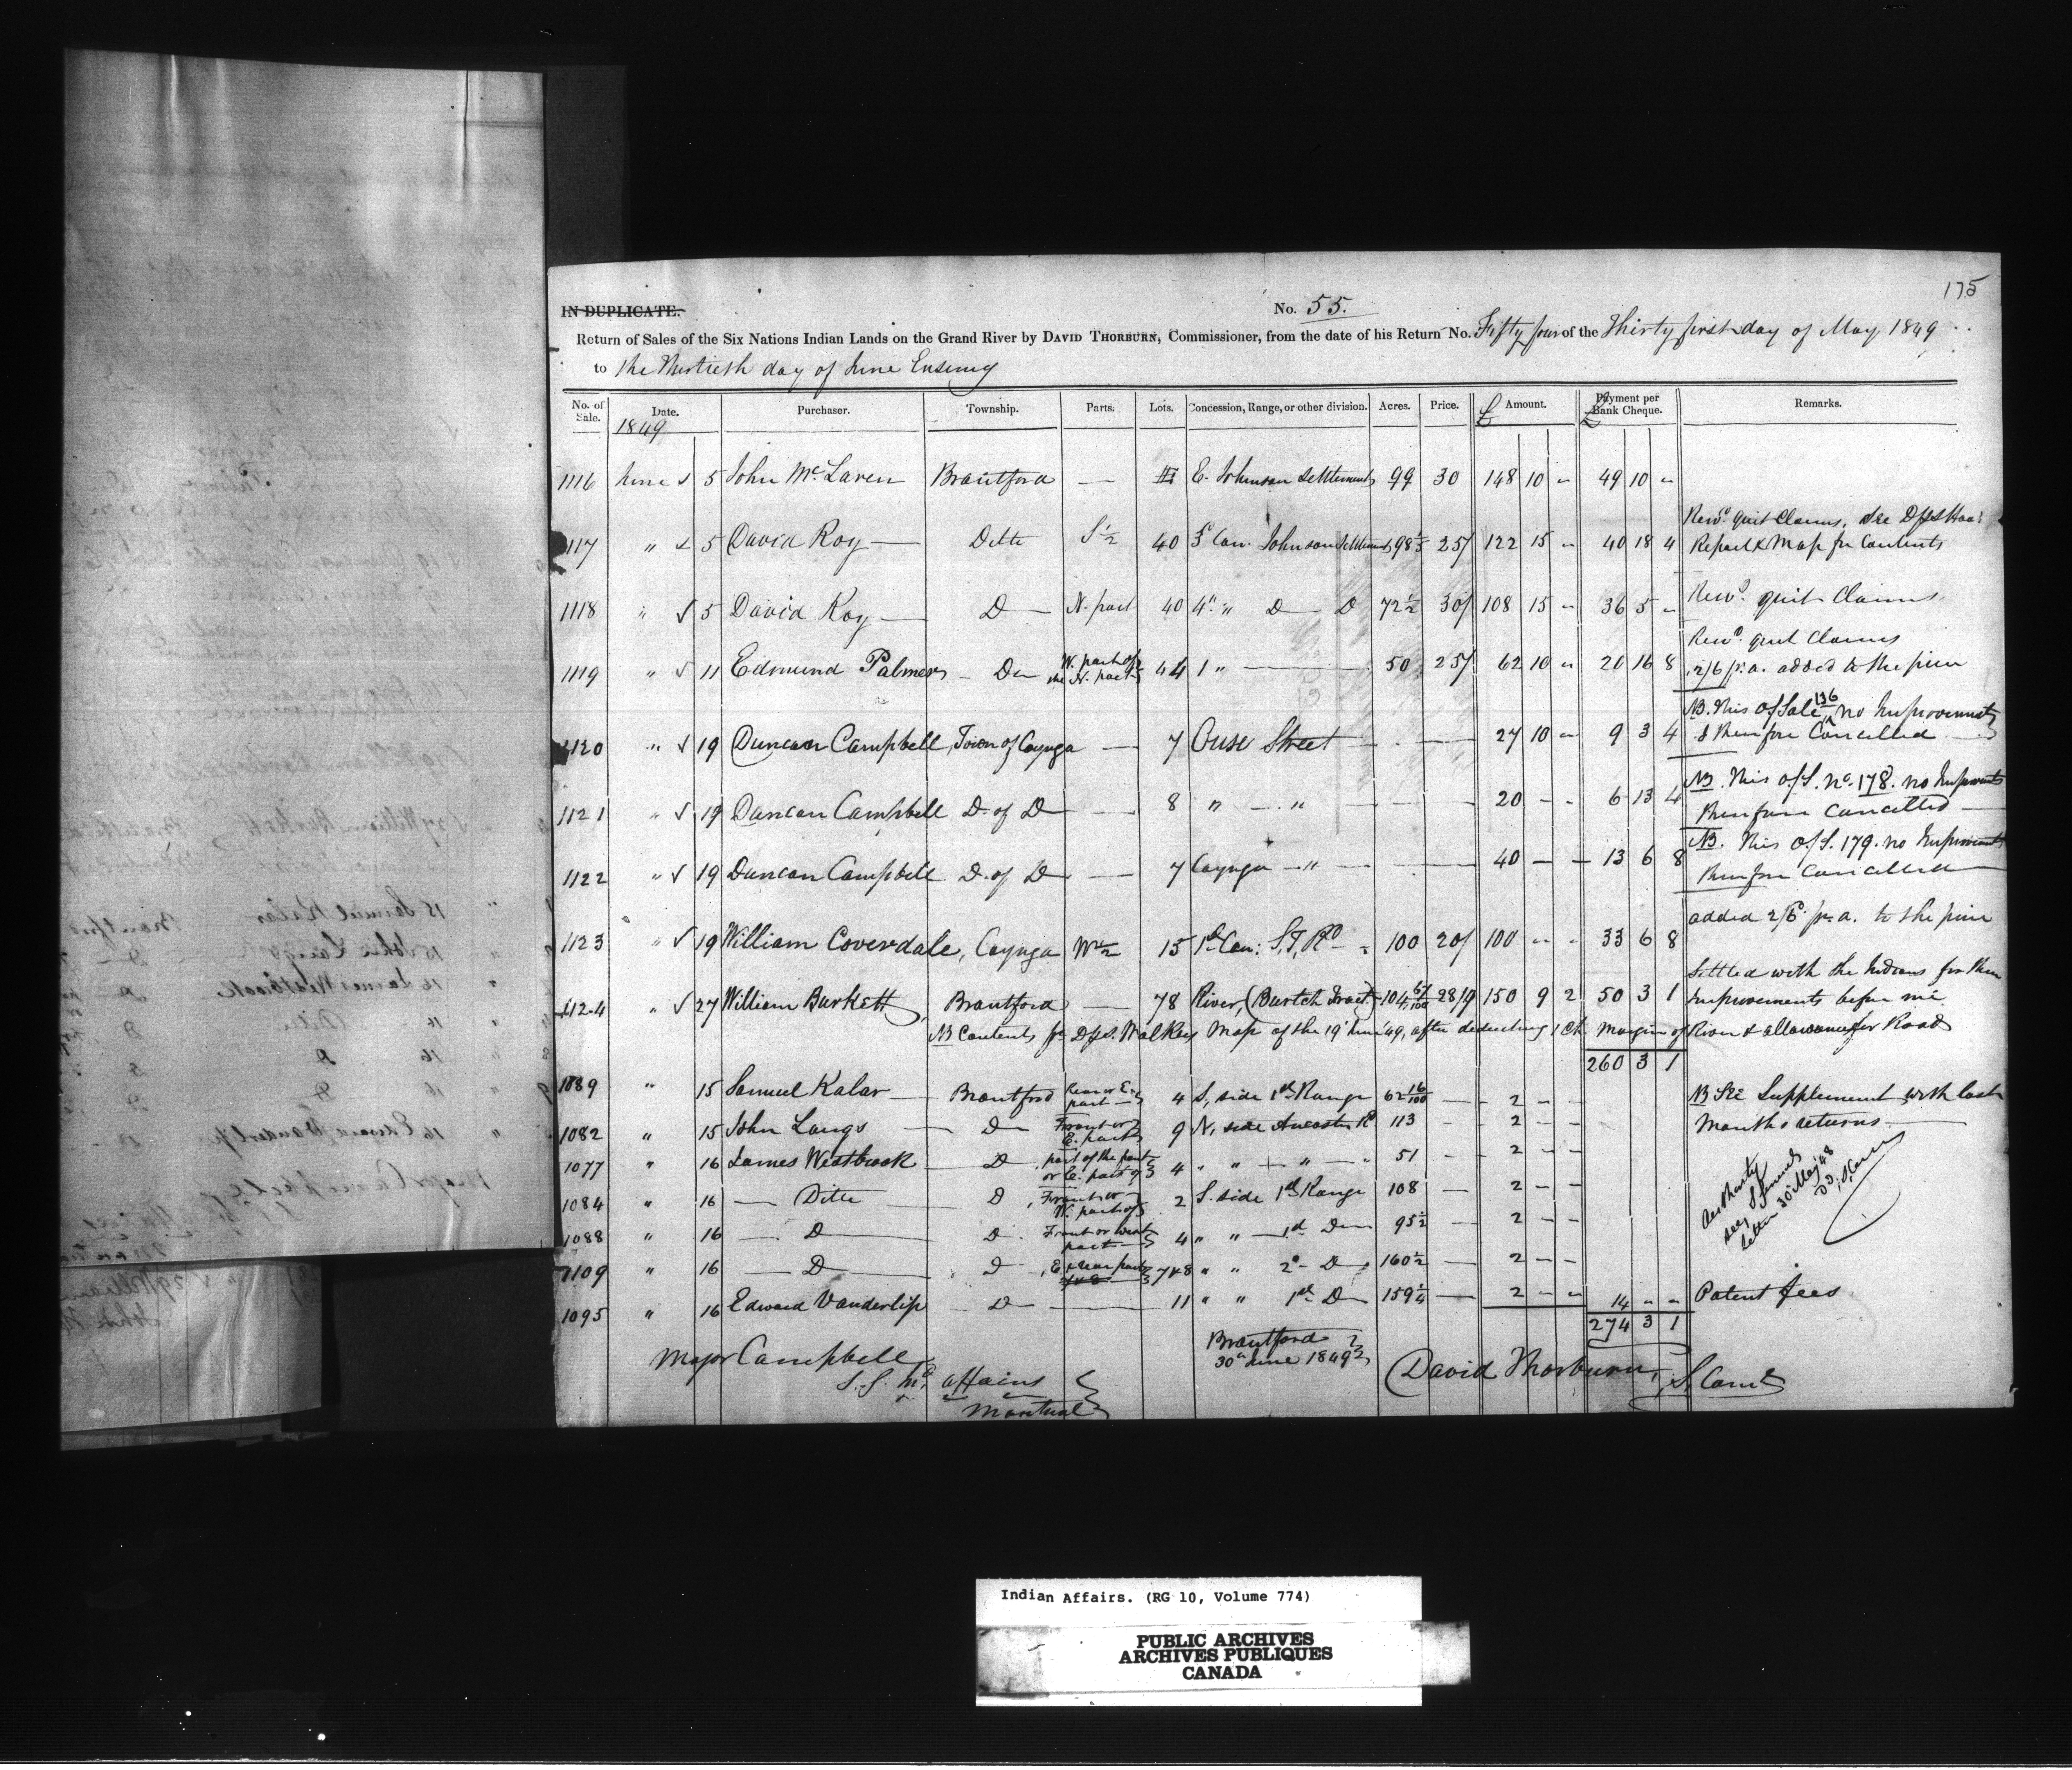 175
IN DUPLICATE.
No. 55.
Return of Sales of the Six Nations Indian Lands on the Grand River by DAVID THORBURN, Commissioner, from the date of his Return No. Fifty four of the Thirty first day of May 1849
to the Thirtieth day of June Ensuing
No. of Sale. Date. Purchaser. Township. Parts. Lots. Concession, Range, or other division. Acres. Price. £ Amount. £ Payment per Bank Cheque. Remarks.
1849
1116 June √ 5 John McLaren Brantford — E. Johnson Settlement 99 30 148 10 " 49 10 "
Rewd. quit Claims, See
1117 " √ 5 David Roy — Ditto S ½ 40 5 Con. Johnson Settlement 25/ 122 15 " 40 18 4 Report & Map for Contents
1118 " √ 5 David Roy — D — N. part 40 4th " D — D 72½ 30/ 108 15 " 36 5 " Rewd. quit Claims
Rewd. quit Claims
1119 " √ 11 Edmund Palmer — Do W. part of the N. part 44 1 " — 50 25/ 62 10 " 20 16 8 2/6 pr. a. added to the price
NB. This of Sale 136 no Improvements
1120 " √ 19 Duncan Campbell, Town of Cayuga — 7 Ouse Street — 27 10 — 9 3 4 & therefore Cancelled
NB. This of S. no. 178. no Improvements
1121 " √ 19 Duncan Campbell D. of D — 8 " — " — 20 - - 6 13 4 therefore Cancelled
NB. This of S. 179. no Improvements
1122 " √ 19 Duncan Campbell D. of D — 7 Cayuga — " — 40 — — 13 6 8 therefore Cancelled
1123 " √ 19 William Coverdale, Cayuga W ½ 15 1st Con: S. T. Rd 100 20/ 100 " " 33 6 8 added 2/6 pr. a. to the price
Settled with the Indians for their
1124 " √ 27 William Burkett, Brantford — 78 River, (Burtch Tract) 104 67/100 28/9 150 9 2 50 3 1 Improvements before me
NB Contents pr. D.P.S. Walkers Map of the 19 June 49, after deducting 1 Ch margin of River & allowance for Road
260 3 1
1089 " 15 Samuel Kalar — Brantford Rear or E. part 4 S. side 1st Range 62 16/100 — 2 - - NB See Supplement with last
1082 " 15 John Langs — D — Front or E. part 9 N. side Ancaster Rd 113 — 2 - - Months returns
1077 " 16 James Westbrook — D part of the part or E. part of 4 " " — " — " 51 - 2 - -
1084 " 16 — Ditto D, Front or W. part of 2 S. side 1st Range 108 — 2 - -
1088 " 16 — D D. Front or West part 4 " " — 1st Do 95½ — 2 - -
Authority see letter 30 May 48
1109 " 16 — D D, E & rear part 7&8 " " 2d D 160½ — 2 - -
1095 " 16 Edward Vanderlip — D — 11 " " 1st D 159¼ — 2 - - 14 - - Patent fees
274 3 1
Major Campbell
S. G. Ind. affairs
Montreal
Brantford
30th June 1849
David Thorburn, S. Comr.
Indian Affairs. (RG 10, Volume 774)
PUBLIC ARCHIVES
ARCHIVES PUBLIQUES
CANADA